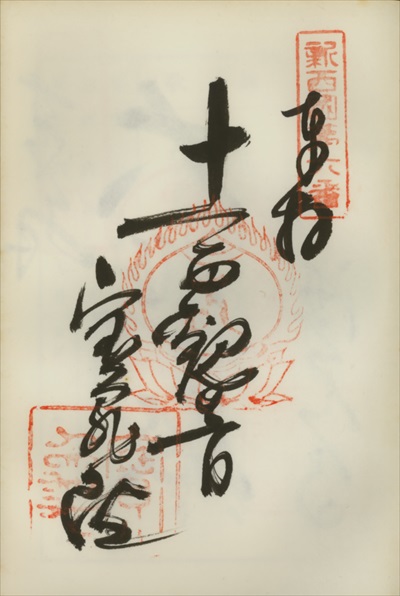 新西国第六番
奉拝
十一面観音
宝亀院